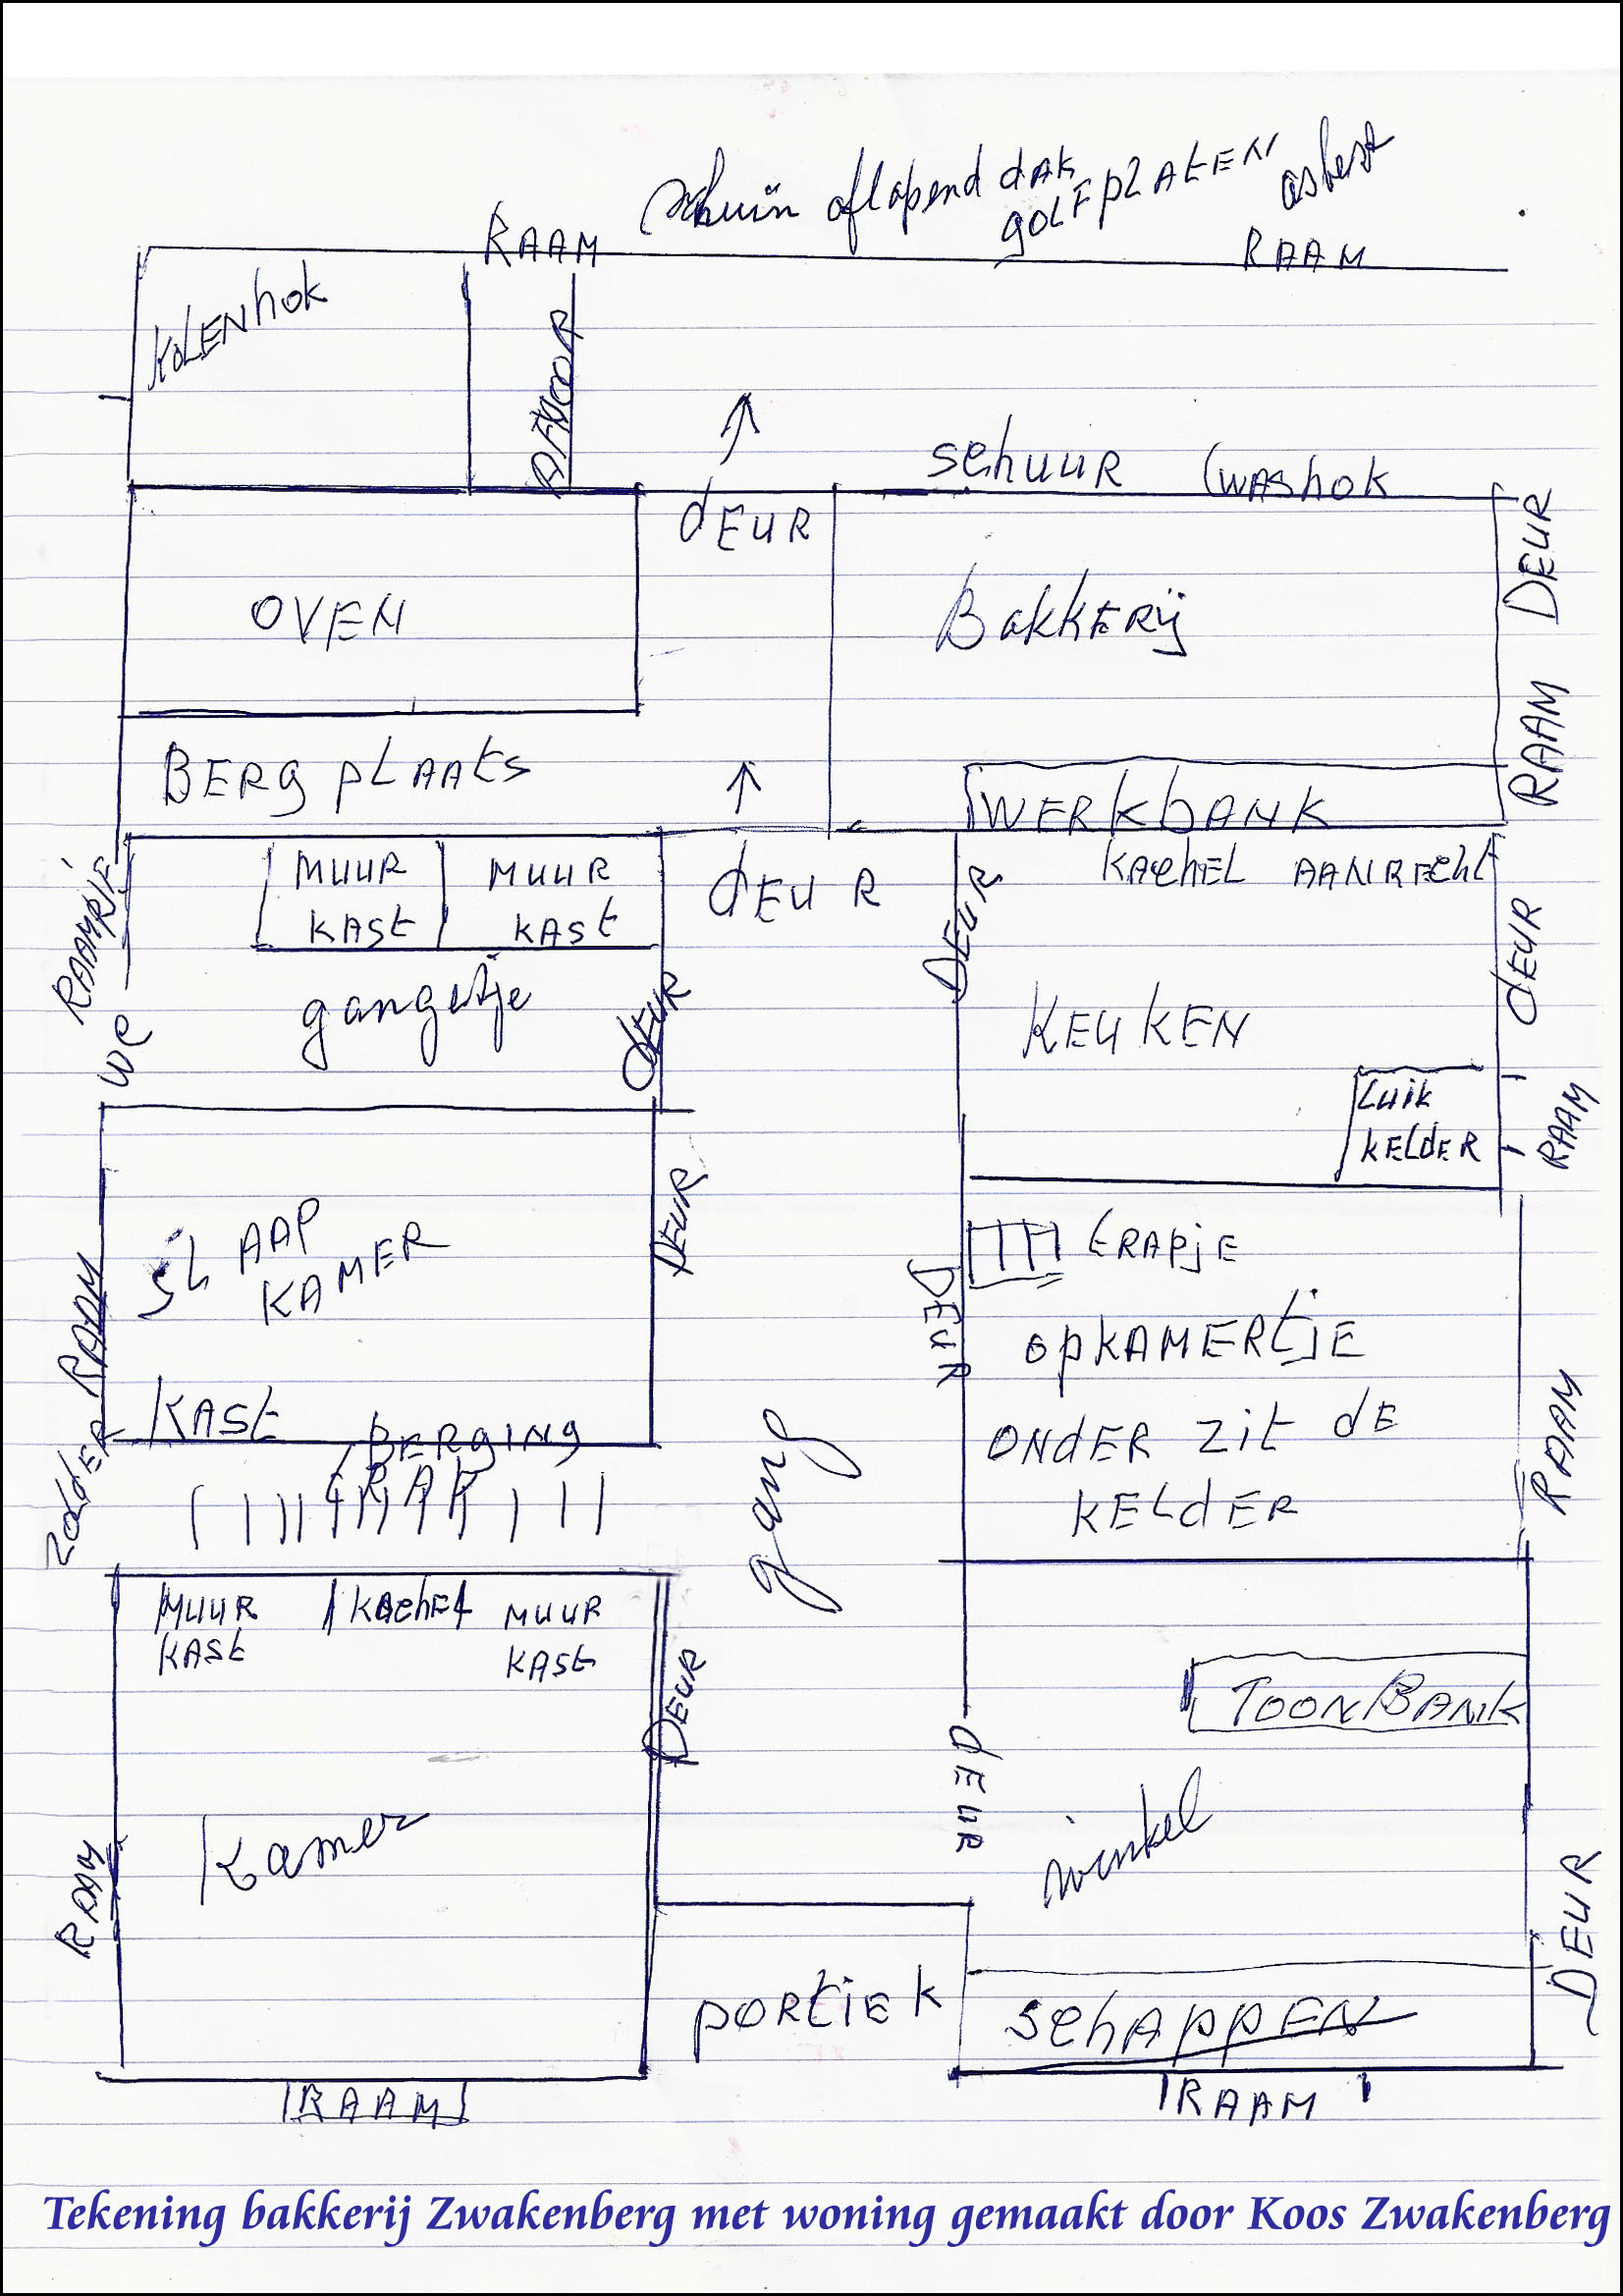 schuin aflopend dak
golfplaten asbest
RAAM
RAAM
KOLENhok
schuur (washok
dEUR
DEUR
OVEN
BakkERij
RAAM
BERg plAAts
WERkbANK
RAAMPJE
MUUR KASt
MUUR KASt
dEUR
DEUR
KAchEL AANREcht
gangetje
dEUR
WC
KEUKEN
dEUR
Luik
kELdER
RAAM
SLAAP
KAMER
DEUR
tRApjE
DEUR
opkAMERtjE
RAAM
ONdER zit dE
kELdER
RAAM
KASt
BERgiNg
tRAP
zoldER
gang
MUUR
KASt
KAchEl
MUUR
KASt
DEUR
TOONBANK
dEUR
Kamer
winkel
RAAM
DEUR
PORtiEk
schAppEN
RAAM
RAAM
Tekening bakkerij Zwakenberg met woning gemaakt door Koos Zwakenberg